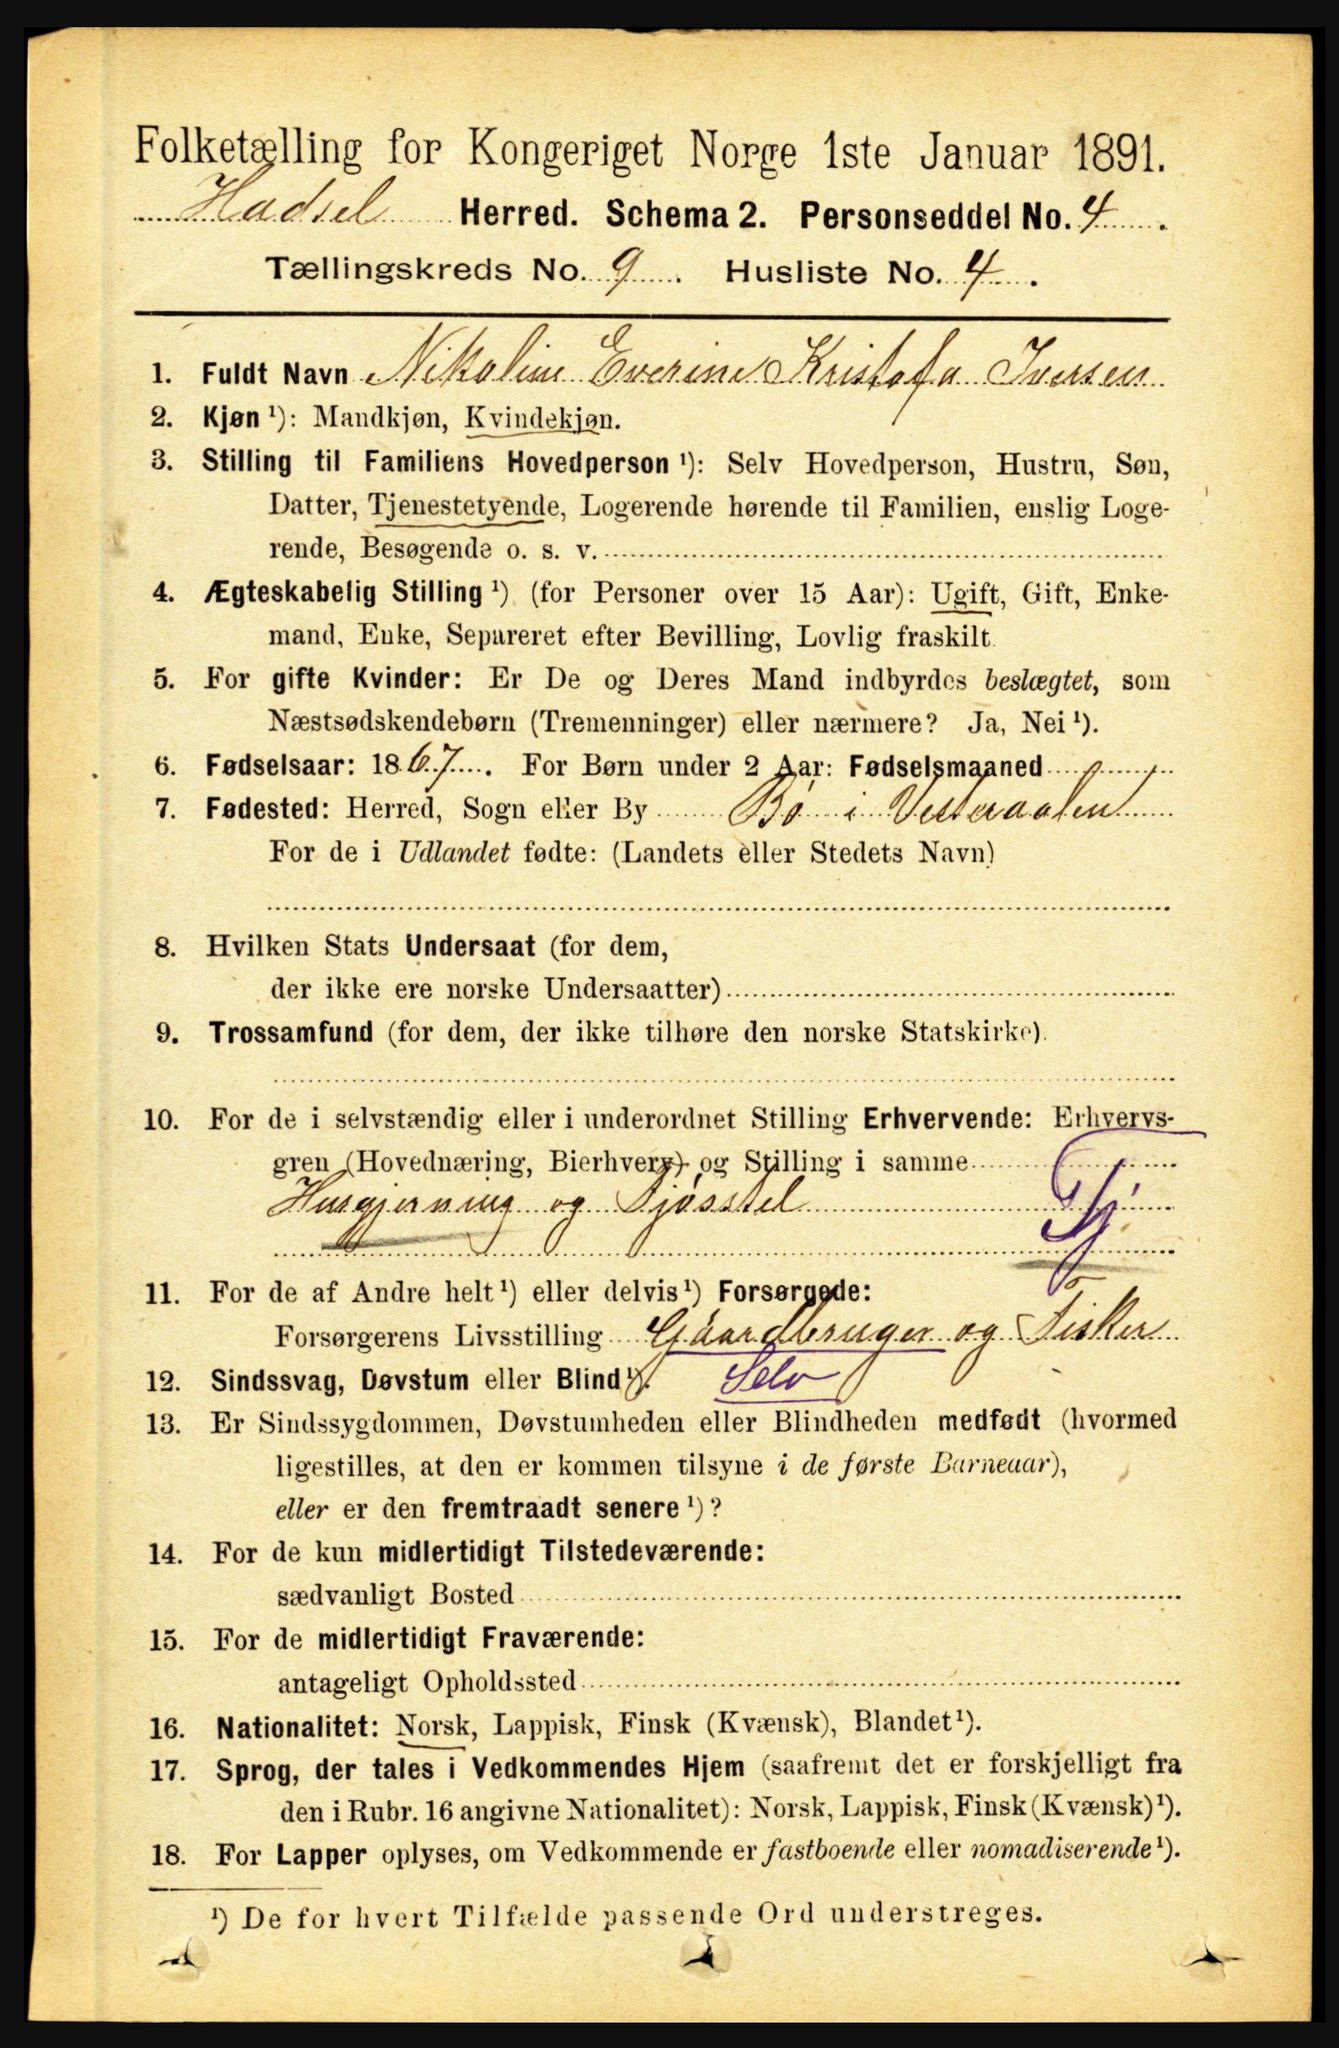 Folketælling for Kongeriget Norge 1ste Januar 1891.
Hadsel Herred. Schema 2. Personseddel No. 4.
Tællingskreds No. 9. Husliste No. 4.
1. Fuldt Navn Nikoline Everine Kristofa Iversen
2. Kjøn ¹): Mandkjøn, Kvindekjøn.
3. Stilling til Familiens Hovedperson ¹): Selv Hovedperson, Hustru, Søn,
Datter, Tjenestetyende, Logerende hørende til Familien, enslig Loge-
rende, Besøgende o. s. v.
4. Ægteskabelig Stilling ¹) (for Personer over 15 Aar): Ugift, Gift, Enke-
mand, Enke, Separeret efter Bevilling, Lovlig fraskilt.
5. For gifte Kvinder: Er De og Deres Mand indbyrdes beslægtet, som
Næstsødskendebørn (Tremenninger) eller nærmere? Ja, Nei ¹).
6. Fødselsaar: 1867. For Børn under 2 Aar: Fødselsmaaned
7. Fødested: Herred, Sogn eller By Bø i Vesteraalen
For de i Udlandet fødte: (Landets eller Stedets Navn)
8. Hvilken Stats Undersaat (for dem,
der ikke ere norske Undersaatter)
9. Trossamfund (for dem, der ikke tilhøre den norske Statskirke).
10. For de i selvstændig eller i underordnet Stilling Erhvervende: Erhvervs-
gren (Hovednæring, Bierhverv) og Stilling i samme
Husgjerning og Fjøsstel Tj.
11. For de af Andre helt ¹) eller delvis ¹) Forsørgede:
Forsørgerens Livsstilling Gaardbruger og Fisker
12. Sindssvag, Døvstum eller Blind ¹). Selv
13. Er Sindssygdommen, Døvstumheden eller Blindheden medfødt (hvormed
ligestilles, at den er kommen tilsyne i de første Barneaar),
eller er den fremtraadt senere ¹)?
14. For de kun midlertidigt Tilstedeværende:
sædvanligt Bosted
15. For de midlertidigt Fraværende:
antageligt Opholdssted
16. Nationalitet: Norsk, Lappisk, Finsk (Kvænsk), Blandet ¹).
17. Sprog, der tales i Vedkommendes Hjem (saafremt det er forskjelligt fra
den i Rubr. 16 angivne Nationalitet): Norsk, Lappisk, Finsk (Kvænsk) ¹).
18. For Lapper oplyses, om Vedkommende er fastboende eller nomadiserende ¹).
¹) De for hvert Tilfælde passende Ord understreges.